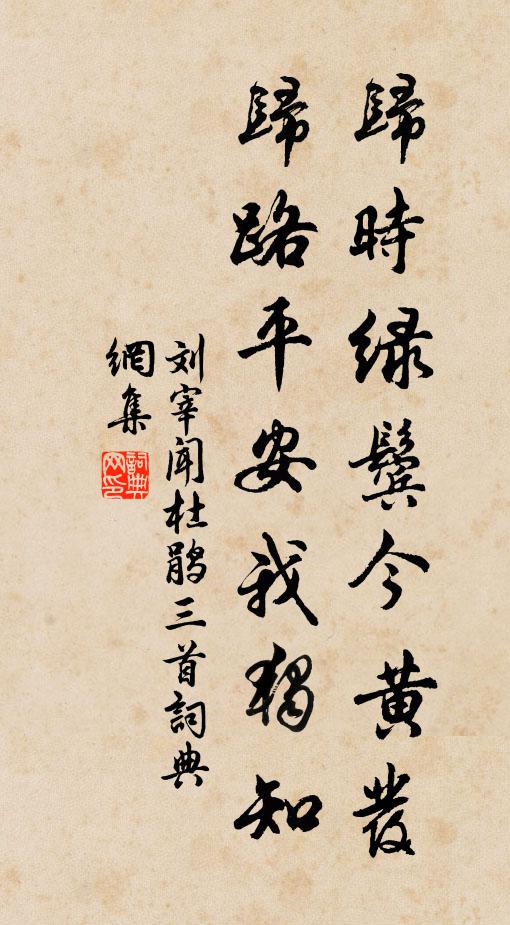 歸時綠鬢今黃發
歸路平安我獨知
刘宰闻杜鹃三首詞典
網集
詞典網印